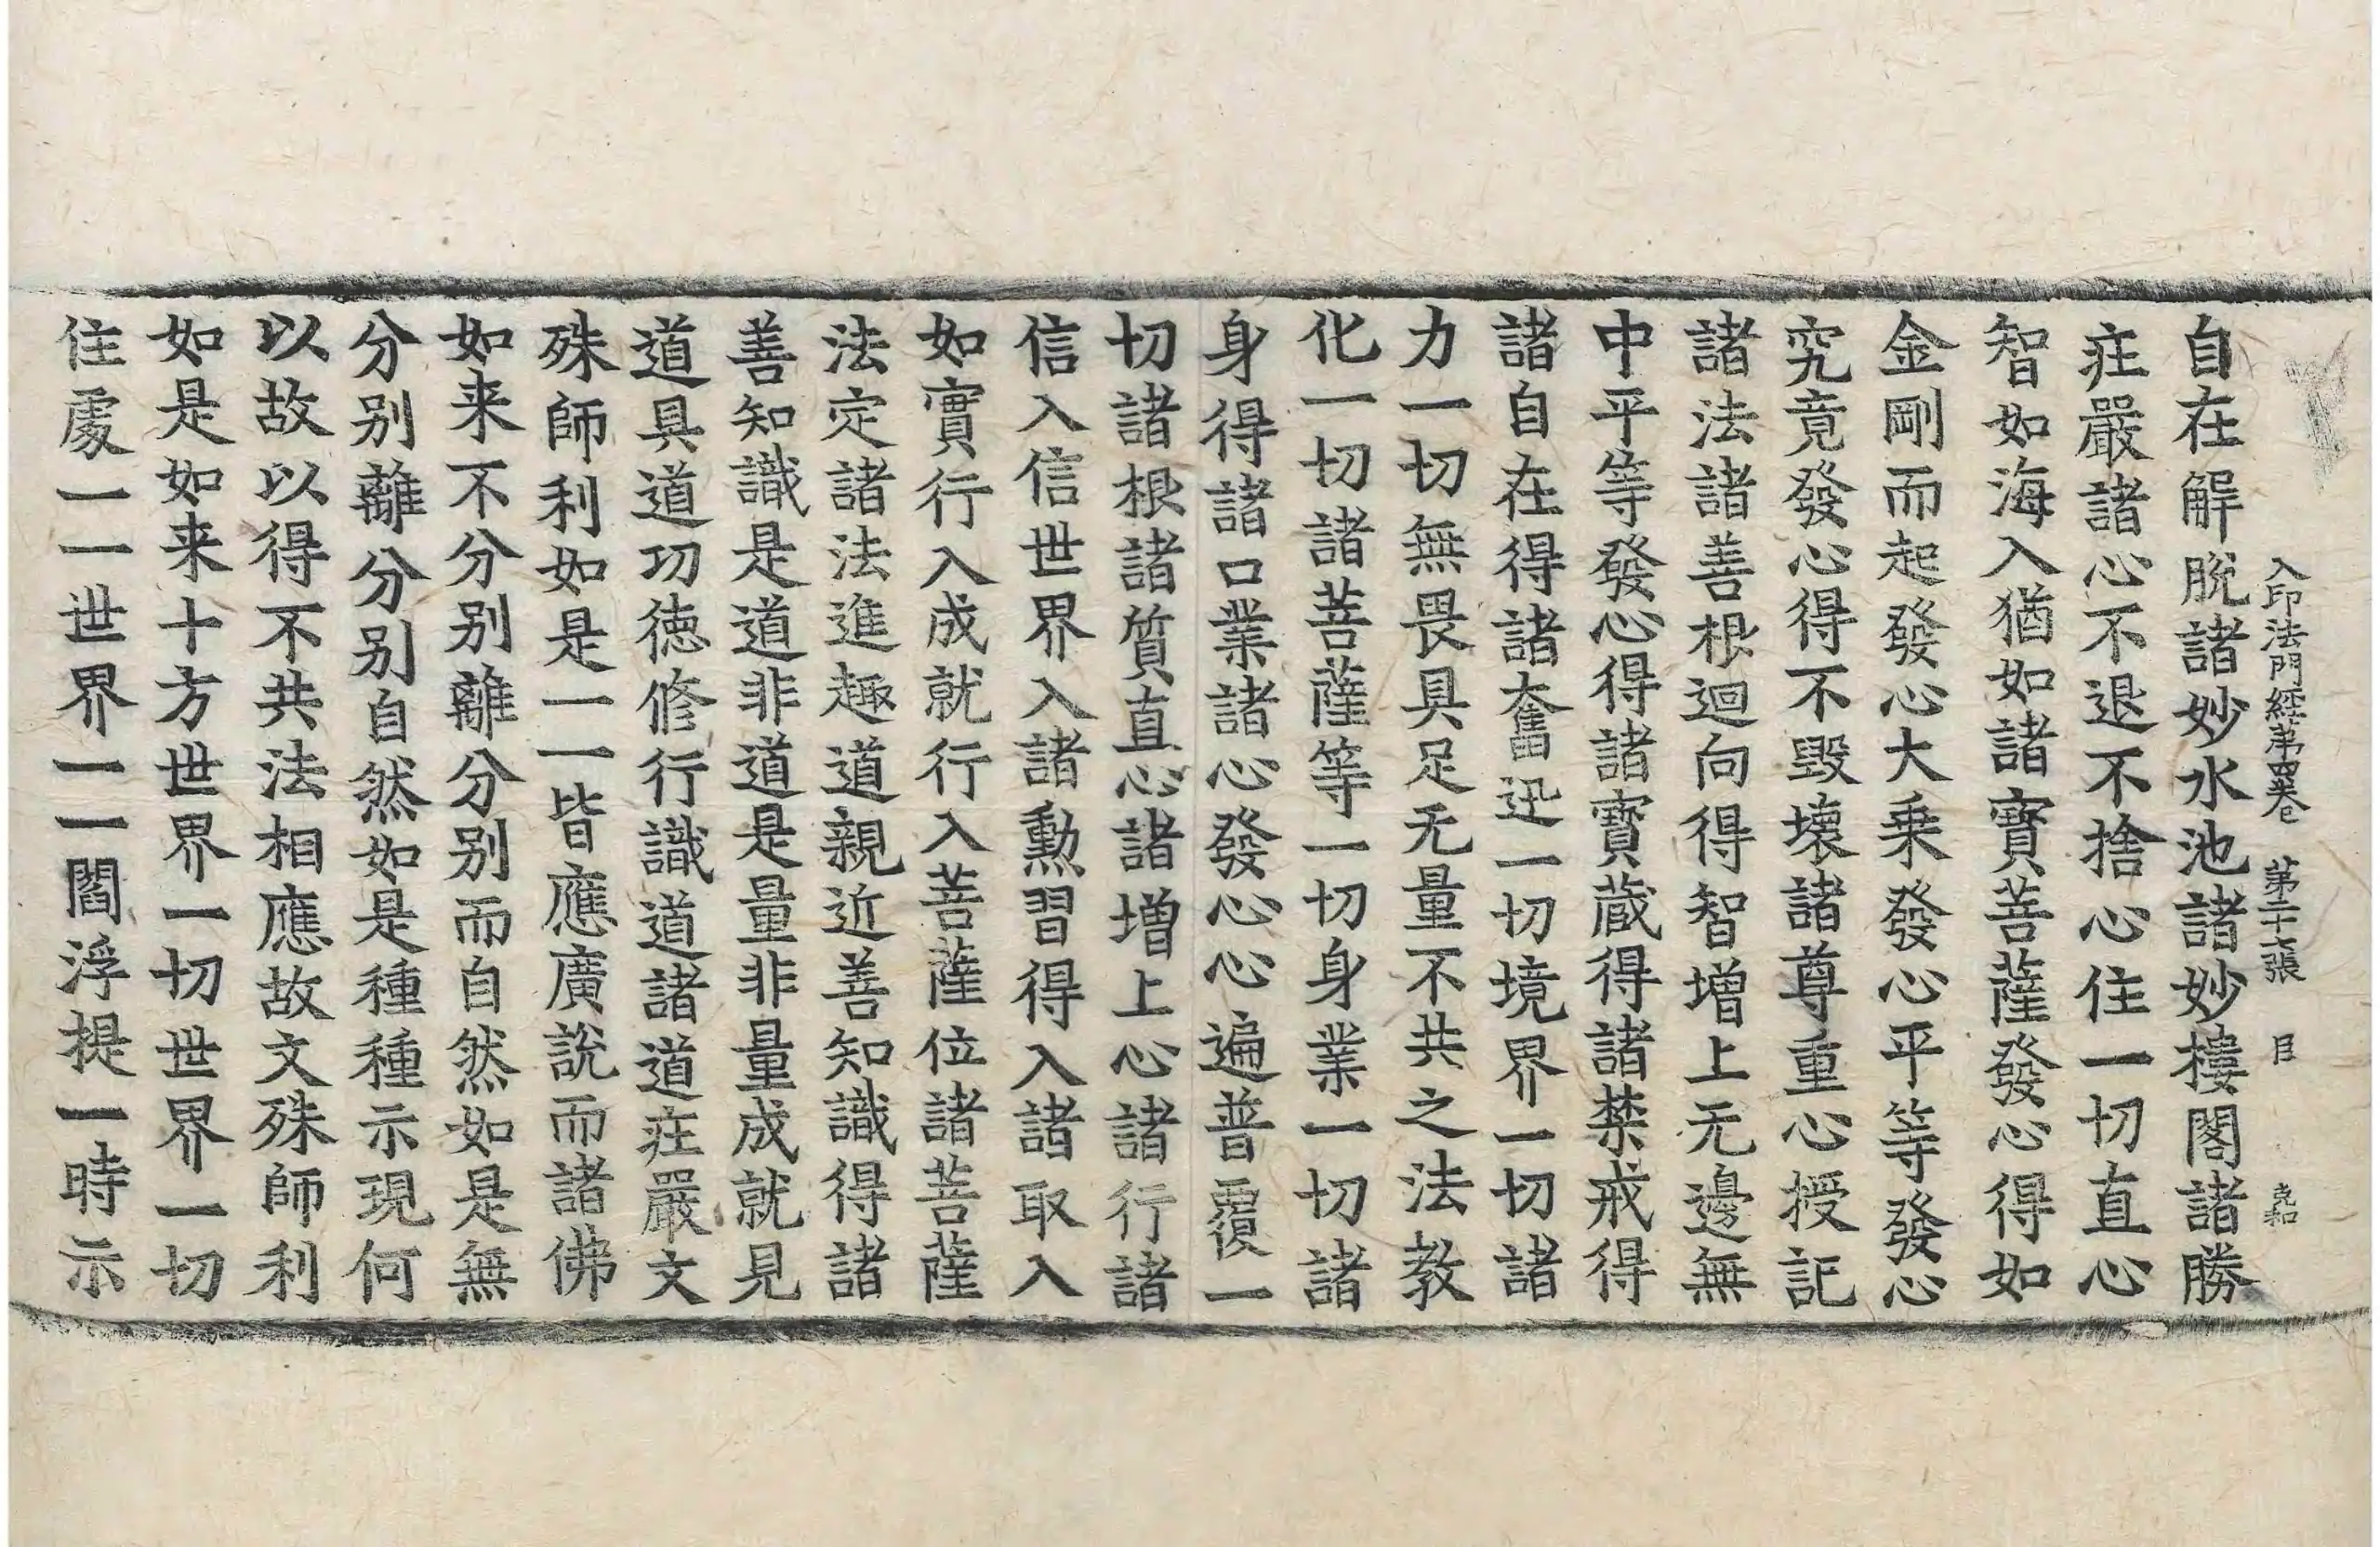 入印法門經第四卷 第二十七張 目 克和
自在解脫諸妙水池諸妙樓閣諸勝
疘嚴諸心不退不捨心住一切直心
智如海入猶如諸寶菩薩發心得如
金剛而起發心大乗發心平等發心
究竟發心得不毀壞諸尊重心授記
諸法諸善根迴向得智增上无邊無
中平等發心得諸寶蔵得諸禁戒得
諸自在得諸奮迅一切境界一切諸
力一切無畏具足无量不共之法教
化一切諸菩薩等一切身業一切諸
身得諸口業諸心發心心遍普覆一
切諸根諸質直心諸增上心諸行諸
信入信世界入諸勳習得入諸取入
如實行入成就行入菩薩位諸菩薩
法定諸法進趣道親近善知識得諸
善知識是道非道是量非量成就見
道具道功徳修行識道諸道疘嚴文
殊師利如是一一皆應廣說而諸佛
如来不分别離分别而自然如是無
分别離分别自然如是種種示現何
以故以得不共法相應故文殊師利
如是如来十方世界一切世界一切
住處一一世界一一閻浮提一時示